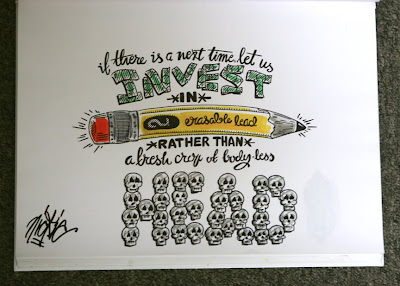 if there is a next time, let us
INVEST
IN
2 erasable lead
RATHER THAN
a fresh crop of body-less
HEAD